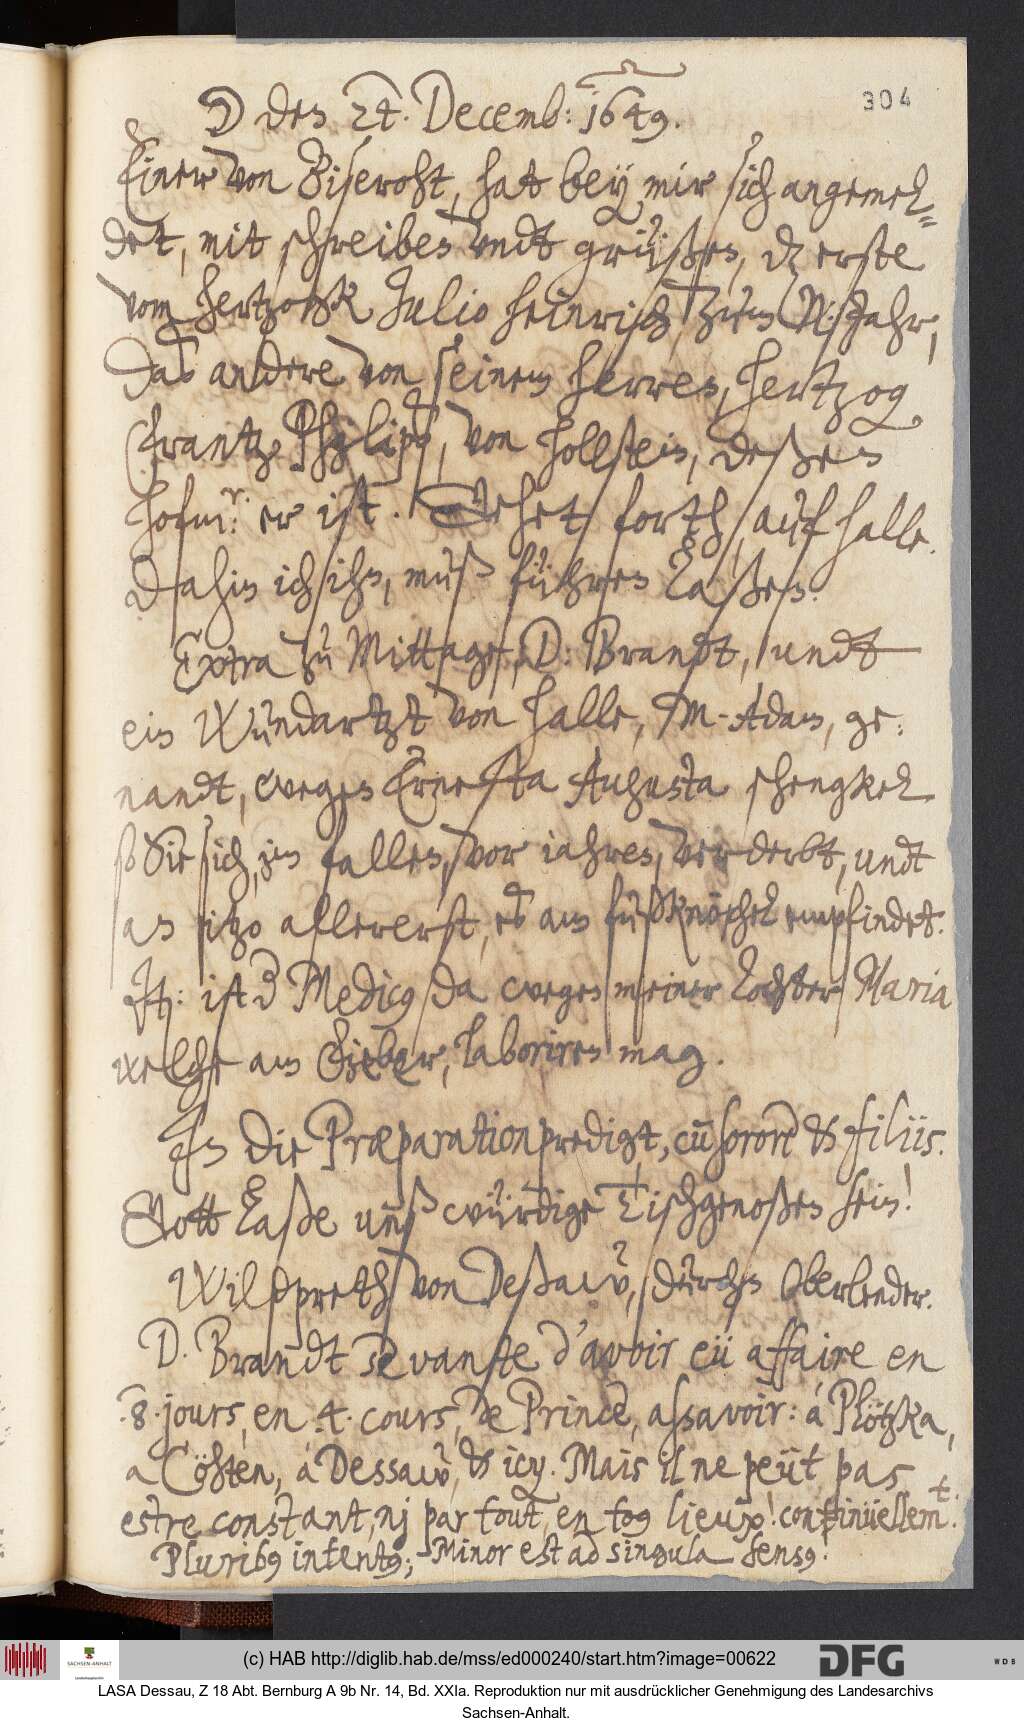 304
☽ den 24. Decemb: 1649.
Einer von Biseroht, hat bey mir sich angemel=
det, mit schreiben undt grüßen, dz erste
vom Hertzogk Julio Heinrich, zum N. Jahr,
das andere von seinem herren, Hertzog
Frantz Philips, von Hollstein, deßen
hofmr: er ist. Gehet forth, auf Halle.
Dahin ich ihn, muß führen laßen.
Extra zu Mittage, D: Brandt, undt
ein Wundartzt von Halle, M. Adam, ge:
nandt, wegen Ernesta Augusta schengkel
so Sie sich, im fallen, vor iahren, verderbt, undt
an itzo allererst, es am fußknöchel empfindet.
It: ist d Medicus da wegen meiner Tochter Maria
welche am Fieber, laboriren mag.
In die Præparationpredigt, cū sorore et filiis.
Gott laße unß würdige Tischgenoßen sein!
Wildpreth von Deßaw, durchs Oberlender.
D. Brandt se vante d'avoir eü affaire en
.8. jours, en .4. cours, de Prince, assavoir: á Plötzka,
a Cöhten, á Dessaw, et icy. Mais il ne peüt pas
estre constant, nj par tout, en tous lieux! continüellemt.
Pluribus intentus; Minor est ad singula sensus.
(c) HAB http://diglib.hab.de/mss/ed000240/start.htm?image=00622
SACHSEN-ANHALT
DFG
WDB
LASA Dessau, Z 18 Abt. Bernburg A 9b Nr. 14, Bd. XXIa. Reproduktion nur mit ausdrücklicher Genehmigung des Landesarchivs
Sachsen-Anhalt.